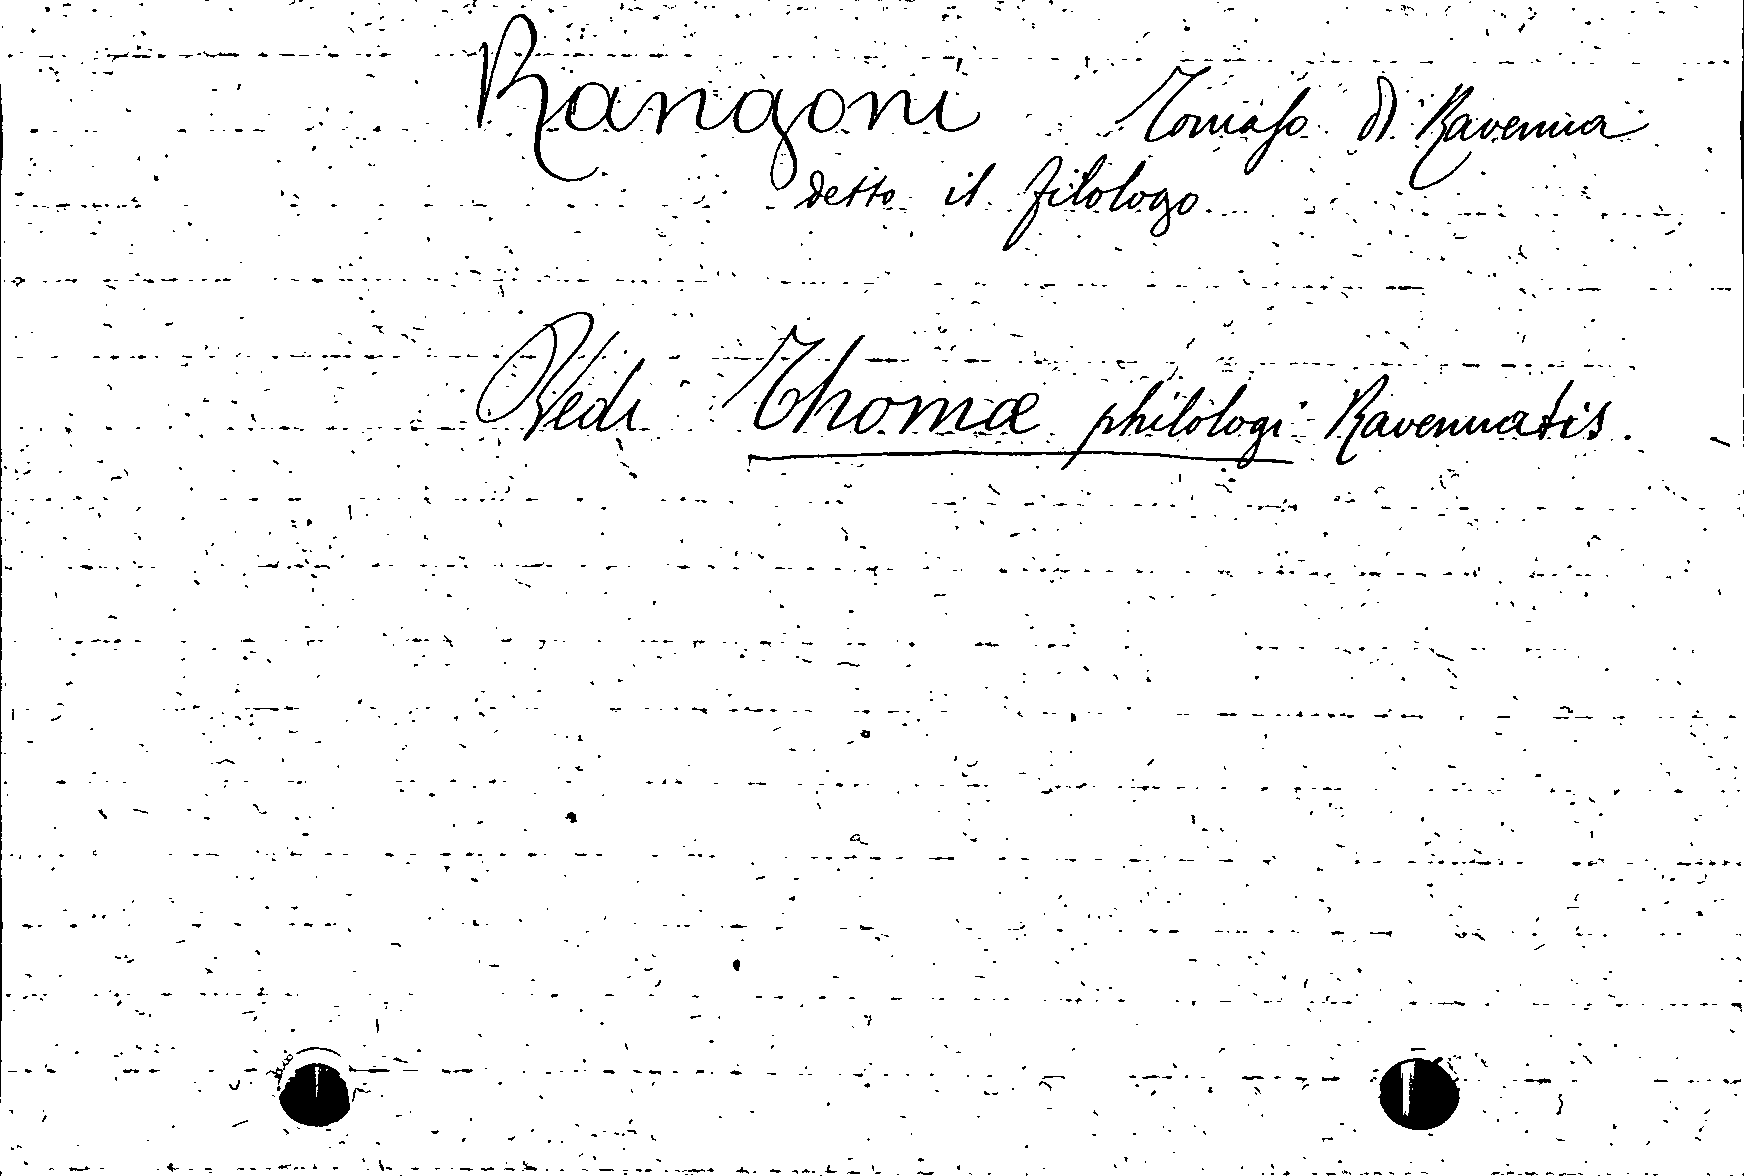 Rangoni Tomaso di Ravenna
detto il filologo
Vedi Thomæ philologi Ravennatis.